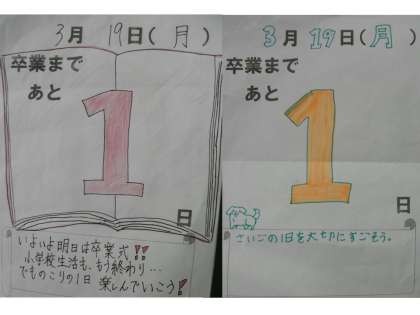 3月 19日(月)
卒業まで
あと
1
日
いよいよ明日は卒業式!!
小学校生活も、もう終わり…
でものこりの1日 楽しんでいこう!
3月19日(月)
卒業まで
あと
1
日
さいごの1日を大切にすごそう。